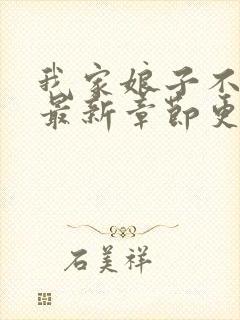 我家娘子不
最新章节更
石美祥